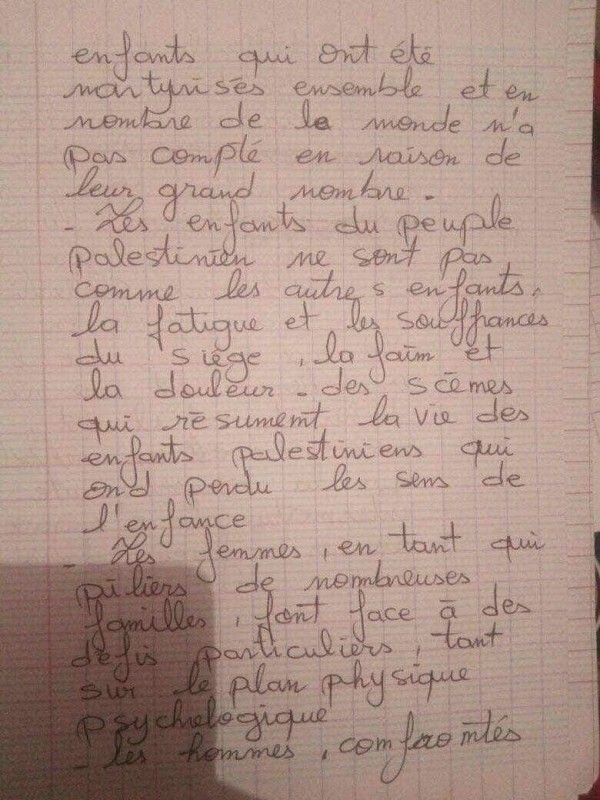 enfants qui ont été
martyrisés ensemble et en
nombre de le monde n'a
pas compté en raison de
leur grand nombre.
- Les enfants du peuple
palestinien ne sont pas
comme les autres enfants,
la fatigue et les souffrances
du siège, la faim et
la douleur. des scèmes
qui résument la vie des
enfants palestiniens qui
ond perdu les sens de
l'enfance
- Les femmes, en tant qui
piliers de nombreuses
familles, font face à des
défis particuliers, tant
sur le plan physique
psychologique
- les hommes,